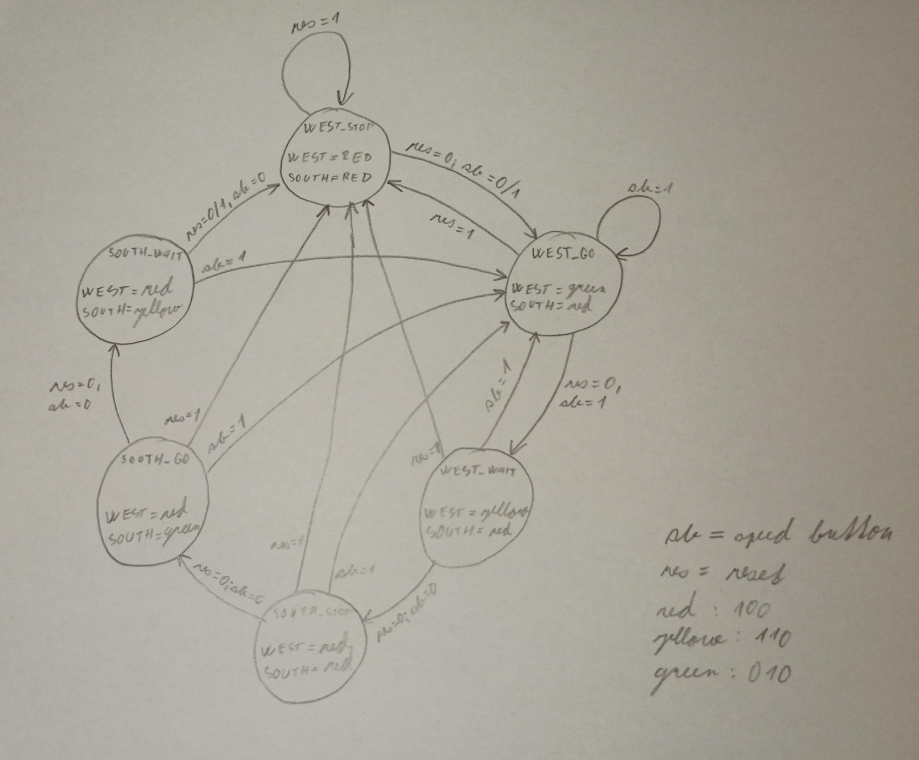 res=1
WEST_STOP
WEST=RED
SOUTH=RED
res=0; sb=0/1
res=1
sb=1
WEST_GO
WEST=green
SOUTH=red
res=0/1, sb=0
SOUTH_WAIT
WEST=red
SOUTH=yellow
sb=1
res=0,
sb=0
res=1
sb=1
sb=1
res=0,
sb=1
SOUTH_GO
WEST=red
SOUTH=green
res=1
WEST_WAIT
WEST=yellow
SOUTH=red
res=1
sb=1
res=0; sb=0
res=0; sb=0
SOUTH_STOP
WEST=red
SOUTH=red
sb = speed button
res = reset
red : 100
yellow : 110
green : 010